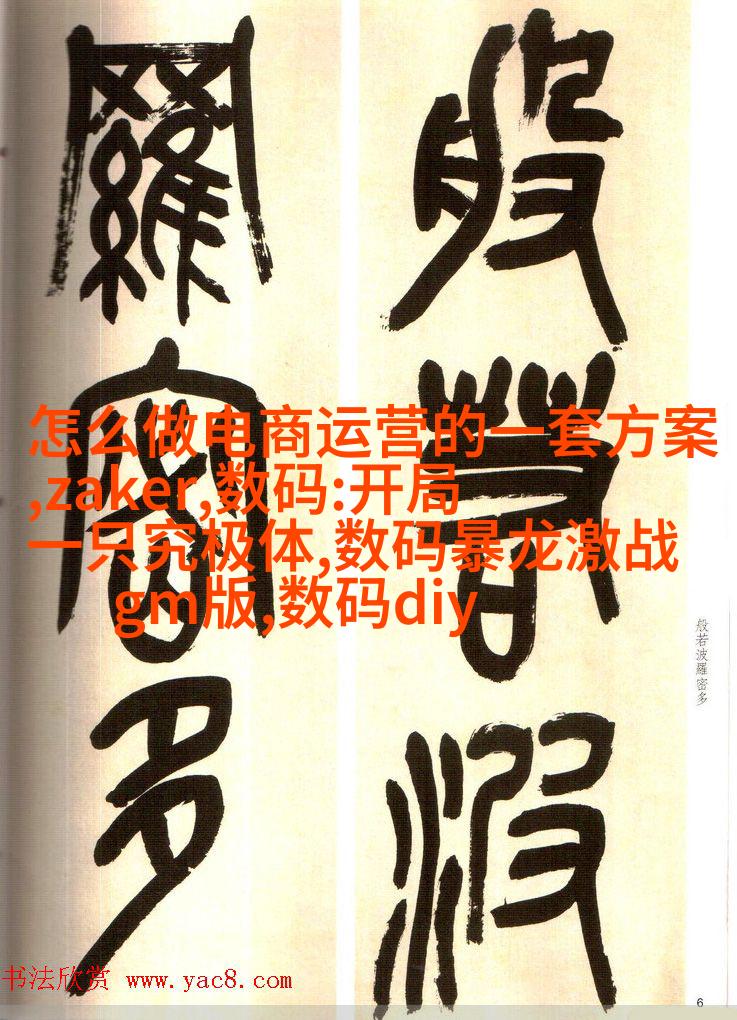 般若波
羅密多
怎么做电商运营的一套方案
,zaker,数码:开局
一只究极体,数码暴龙激战
gm版,数码diy
般若波羅密多
书法欣赏 www.yac8.com
6